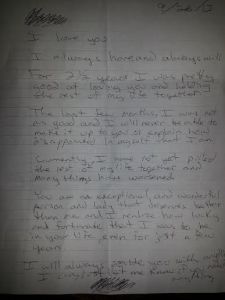 I love you
I always have and always will
For 2 1/2 years I was pretty
good at loving you and holding
the rest of my life together
The last few months, I was not
as good and I will never be able to
make it up to you or explain how
disappointed in myself that I am
Currently, I have not yet pulled
the rest of my life together and
many things have worsened
You are an exceptional and wonderful
person and lady that deserves better
than me and I realize how lucky
and fortunate that I was to be
in your life, even for just a few
years
I will always provide you with
let me know if